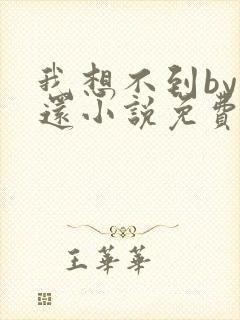 我想不到by
還小說免費
王華華